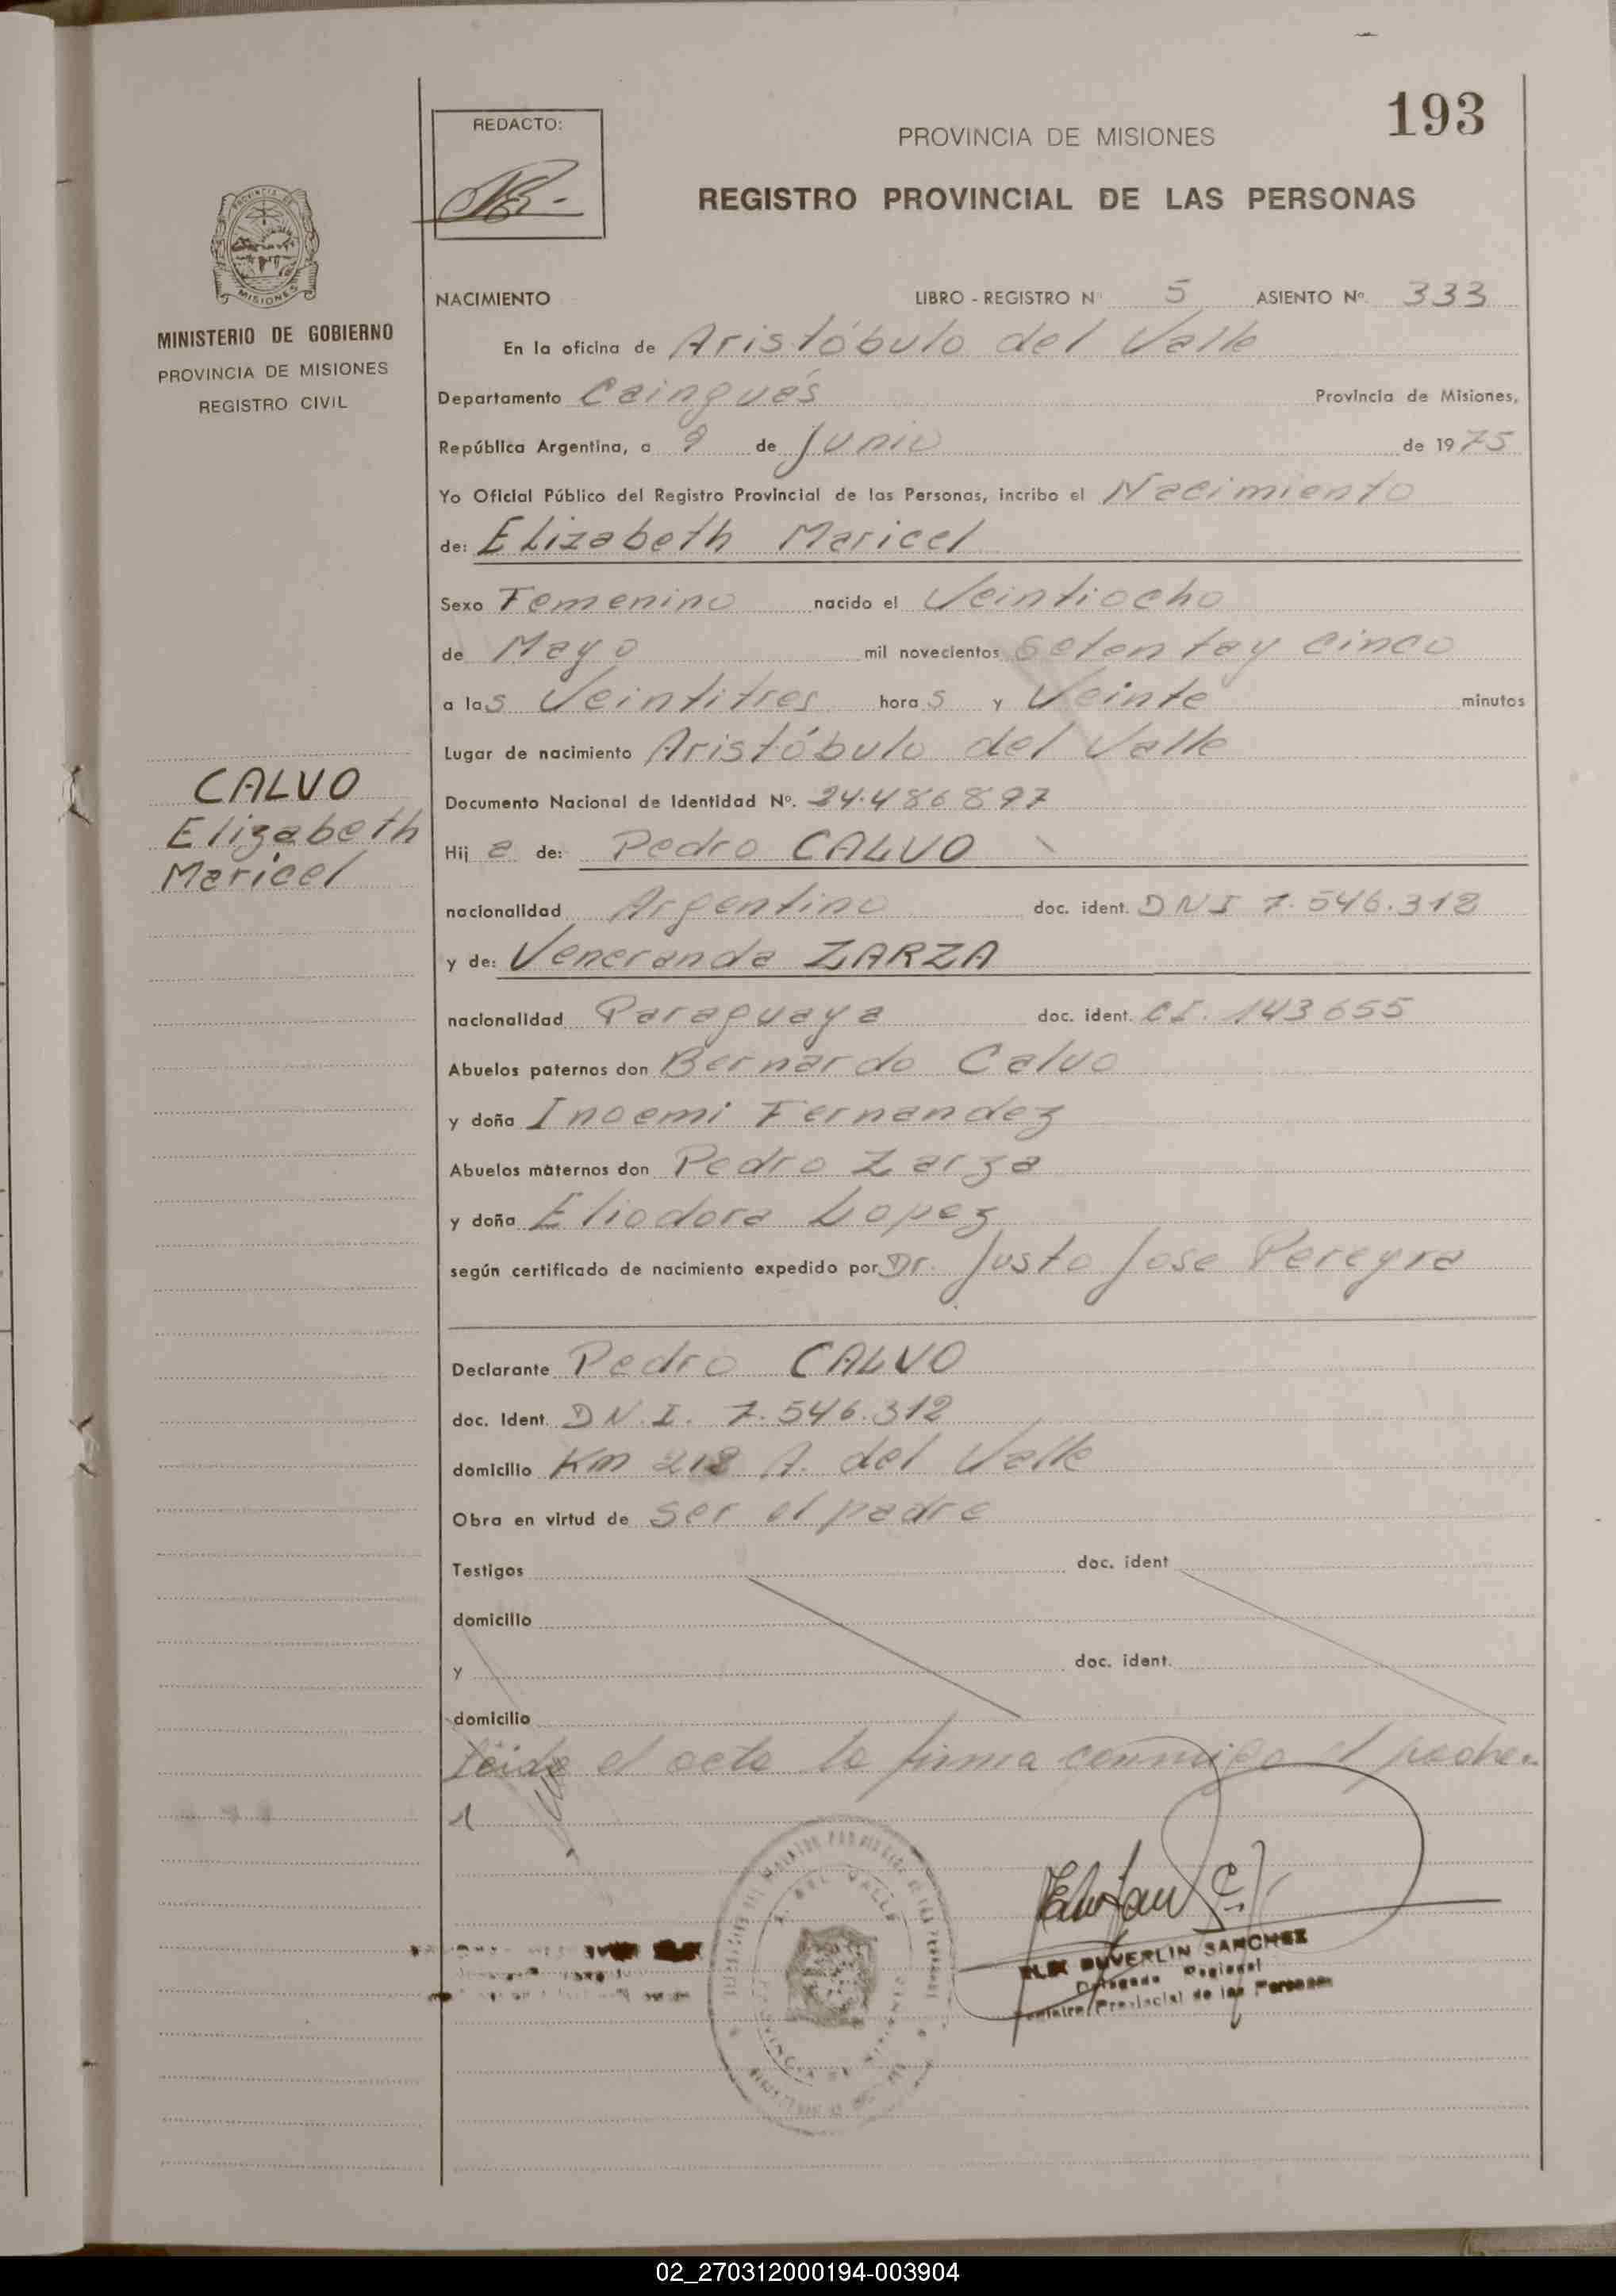 193
REDACTO:
PROVINCIA DE MISIONES
REGISTRO PROVINCIAL DE LAS PERSONAS
PROVINCIA DE
MISIONES
MINISTERIO DE GOBIERNO
PROVINCIA DE MISIONES
REGISTRO CIVIL
NACIMIENTO LIBRO - REGISTRO Nº 5 ASIENTO Nº 333
En la oficina de Aristóbulo del Valle
Departamento Cainguás Provincia de Misiones,
República Argentina, a 9 de Junio de 1975
Yo Oficial Público del Registro Provincial de las Personas, incribo el Nacimiento
de: Elizabeth Maricel
Sexo Femenino nacido el Veintiocho
de Mayo mil novecientos setenta y cinco
a las Veintitres horas y Veinte minutos
Lugar de nacimiento Aristóbulo del Valle
CALVO
Elizabeth
Maricel
Documento Nacional de Identidad Nº. 24.486897
Hij a de: Pedro CALVO
nacionalidad Argentino doc. ident. DNI 7.546.312
y de: Veneranda ZARZA
nacionalidad Paraguaya doc. ident. CI. 143655
Abuelos paternos don Bernardo Calvo
y doña Inoemi Fernandez
Abuelos maternos don Pedro Zarza
y doña Eliodora Lopez
según certificado de nacimiento expedido por Dr. Justo Jose Pereyra
Declarante Pedro CALVO
doc. Ident. DN.I. 7.546.312
domicilio Km 218 A. del Valle
Obra en virtud de ser el padre
Testigos doc. ident
domicilio
y doc. ident.
domicilio
Leida el acta la firma conmigo el padre
DEL VALLE
DUVERLIN SANCHEZ
Delegado Regional
Provincial de las Personas
02_270312000194-003904